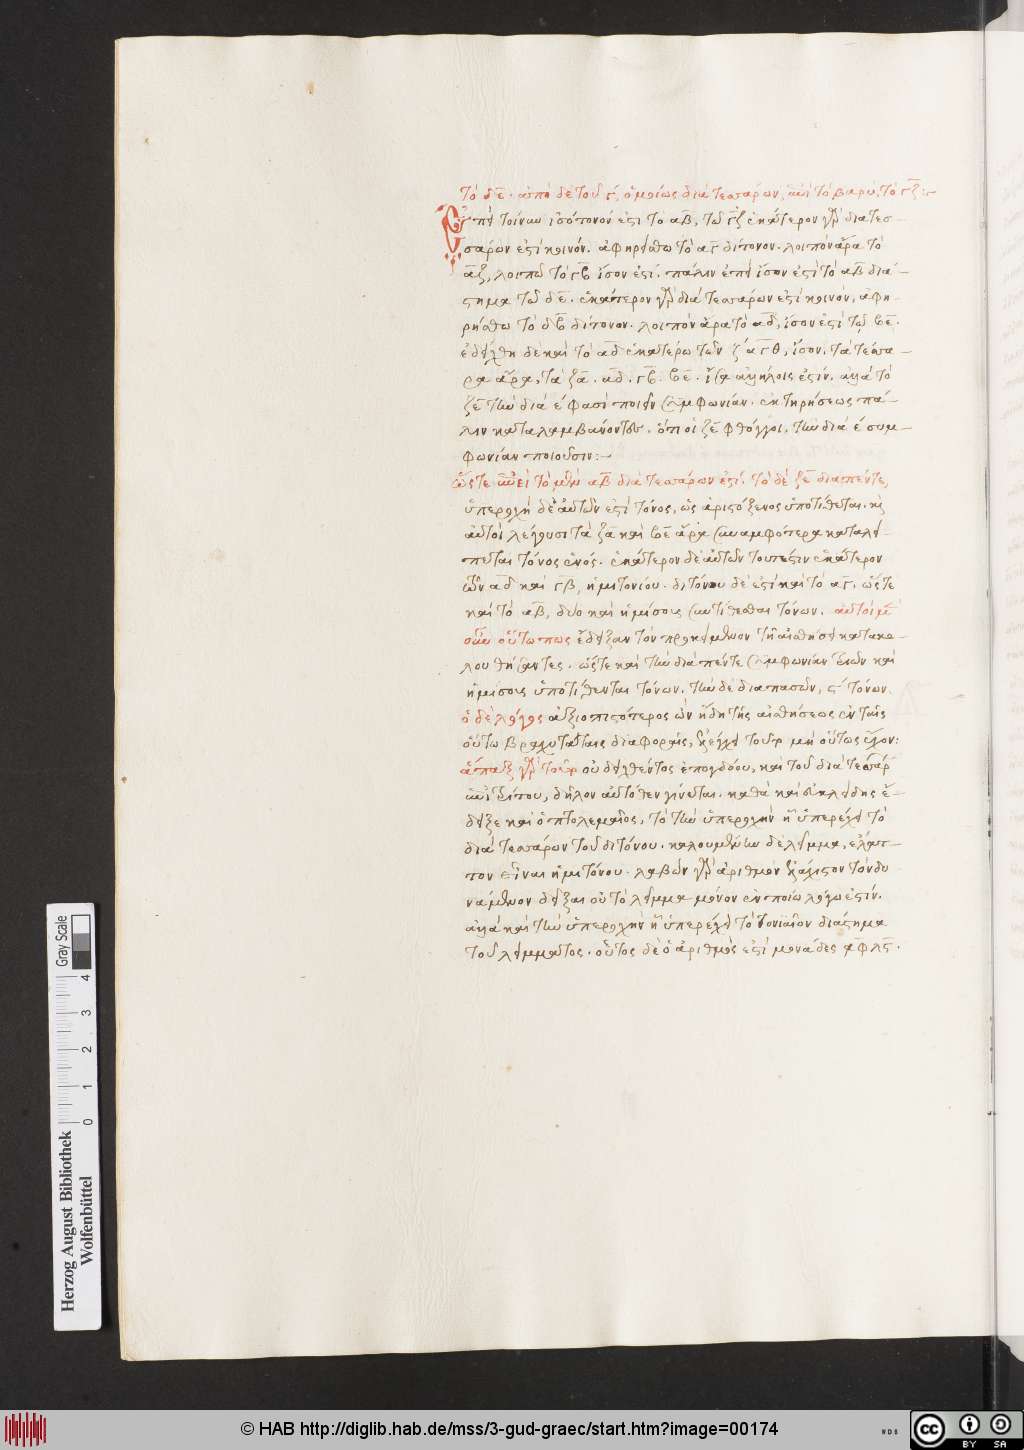 τὸ δε̄· ἀπὸ δὲ τοῦ γ, ὁμοίως διὰ τεσσάρων, ἐπὶ τὸ βαρὺ, τὸ γζ̄:~
Ἐπεὶ τοίνυν ἰσότονόν ἐστι τὸ αβ̄, τῶ γζ̄ ἑκάτερον γὰρ διατεσ-
σάρων ἐστὶ κοινόν. ἀφηρείσθω τὸ αγ̄ δίτονον. λοιπὸν ἄρα τὸ
αζ̄, λοιπῶ τὸ γβ̄ ἴσον ἐστί. πάλιν ἐπεὶ ἴσον ἐστὶ τὸ αβ̄ διά-
στημα τῶ δε̄. ἑκάτερον γὰρ διὰ τεσσάρων ἐστὶ κοινὸν, ἀφη-
ρήσθω τὸ δβ̄ δίτονον. λοιπὸν ἄρα τὸ αδ̄, ἴσον ἐστὶ τῶ βε̄.
ἐδείχθη δὲ καὶ τὸ αδ̄ ἑκατέρω τῶν ζᾱ γβ, ἴσον. τὰ τέσσα-
ρα ἄρα, τὰ ζᾱ. αδ̄. γβ̄. βε̄. ἴσα ἀλλήλοις ἐστίν. ἀλλὰ τὸ
ζε̄ τὴν διὰ έ φασὶ ποιεῖν συμφωνίαν. ἐκ τηρήσεως πά-
λιν καταλαμβάνοντες. ὅτι οἱ ζε̄ φθόγγοι, τὴν διὰ έ συμ-
φωνίαν ποιοῦσιν:~
ὥστε ἐπεὶ τὸ μὲν αβ̄ διὰ τεσσάρων ἐστί. τὸ δὲ ζε̄ διὰ πέντε,
ὑπεροχὴ δὲ αὐτῶν ἐστὶ τόνος, ὡς ἀριστόξενος ὑποτίθεται. καὶ
αὐτοὶ λέγουσι τὰ ζᾱ καὶ βε̄ ἄρα συναμφότερα καταλεί-
πεται τόνος ἑνός. ἑκάτερον δὲ αὐτῶν τουτέστιν ἑκάτερον
τῶν αδ̄ καὶ γβ̄, ἡμιτονίου. διτόνου δέ ἐστι καὶ τὸ αγ̄. ὥστε
καὶ τὸ αβ̄, δύο καὶ ἡμίσους συντίθεσθαι τόνων. αὐτοὶ μὲν
οὖν οὕτω πως ἔδειξαν τὸν προκείμενον τῆ αἰσθήσει κατακο-
λουθήσαντες. ὥστε καὶ τὴν διὰ πέντε συμφωνίαν τριῶν καὶ
ἡμίσους ὑποτίθενται τόνων. τὴν δὲ διαπασῶν, ς τόνων.
ὁ δὲ λόγος ἀξιοπιστότερος ὢν ἤδη τῆς αἰσθήσεως ἐν ταῖς
οὕτω βραχυτάταις διαφοραῖς, ἐλέγχει τοῦτο μὴ οὕτως ἔχον:
ἅπαξ γὰρ τοῦ τόνου δειχθέντος ἐπογδόου, καὶ τοῦ διὰ τεσσάρων
ἐπιτρίτου, δῆλον αὐτόθεν γίνεται. καθὰ καὶ εὐκλείδης ἔ-
δειξε καὶ ὁ πτολεμαῖος, τὸ τὴν ὑπεροχὴν ἣ ὑπερέχει τὸ
διὰ τεσσάρων τοῦ διτόνου. καλουμένην δὲ λεῖμμα, ἔλατ-
τον εἶναι ἡμιτόνου. λαβὼν γὰρ ἀριθμὸν ἐλάχιστον τὸν δυ-
νάμενον δεῖξαι οὐ τὸ λεῖμμα μόνον ἐν ποίω λόγω ἐστίν.
ἀλλὰ καὶ τὴν ὑπεροχὴν ἣ ὑπερέχει τὸ τονιαῖον διάστημα
τοῦ λείμματος. οὗτος δὲ ὁ ἀριθμὸς ἐστὶ μονάδες ͵αφλς̄.
Gray Scale
0 1 2 3 4
Herzog August Bibliothek
Wolfenbüttel
© HAB http://diglib.hab.de/mss/3-gud-graec/start.htm?image=00174
WDB
CC BY SA